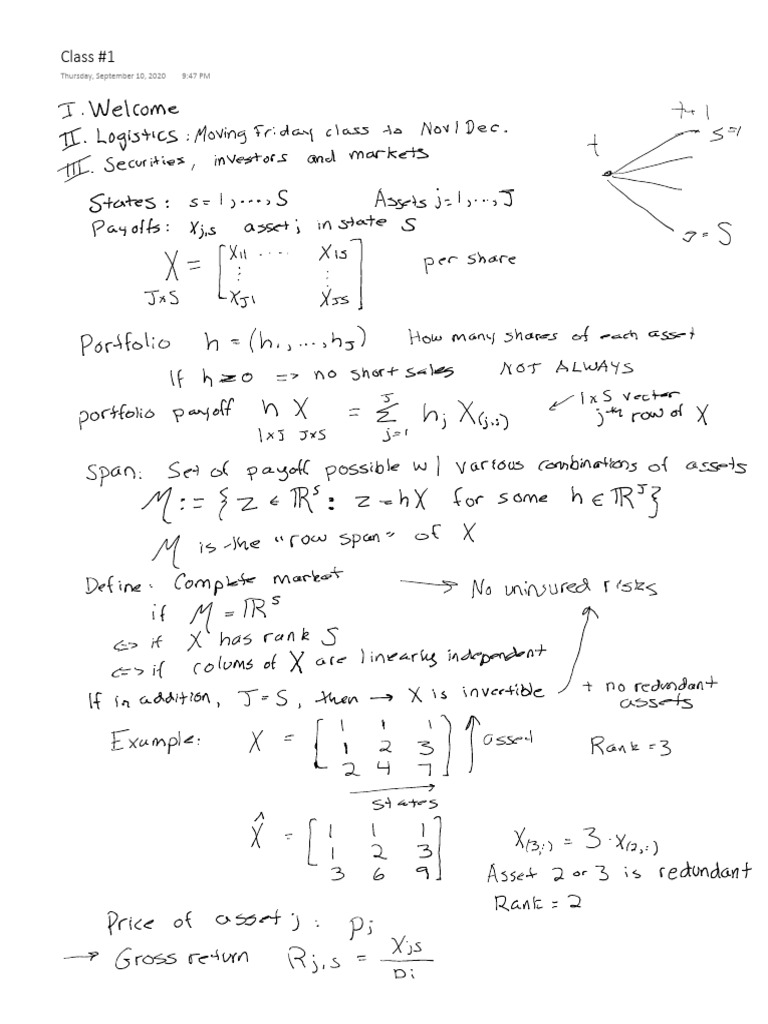 Class #1
Thursday, September 10, 2020 9:47 PM
I. Welcome
II. Logistics: Moving Friday class to Nov/Dec.
III. Securities, investors and markets
t
t+1
s=1
s=S
States: s=1,...,S Assets j=1,...,J
Payoffs: Xj,s asset j in state S
X = [X11 .... X1S
: :
XJ1 XJS] per share
J×S
Portfolio h = (h1,...,hJ) How many shares of each asset
If h≥0 => no short sales NOT ALWAYS
portfolio payoff h X = Σ hj X(j,s) ↙ 1×S vector
1×J J×S J j=1 j-th row of X
Span: Set of payoff possible w/ various combinations of assets
M := {z ∈ ℝ^S : z = hX for some h ∈ ℝ^J}
M is the "row span" of X
Define: Complete market → No uninsured risks
if M = ℝ^S
<=> if X has rank S
<=> if colums of X are linearly independent
If in addition, J=S, then → X is invertible + no redundant
assets
Example: X = [1 1 1
1 2 3
2 4 7] ↑ asset Rank=3
→
states
X̂ = [1 1 1
1 2 3
3 6 9] X(3,:) = 3·X(2,:)
Asset 2 or 3 is redundant
Rank=2
Price of asset j: Pj
→ Gross return Rj,s = Xjs / Pj